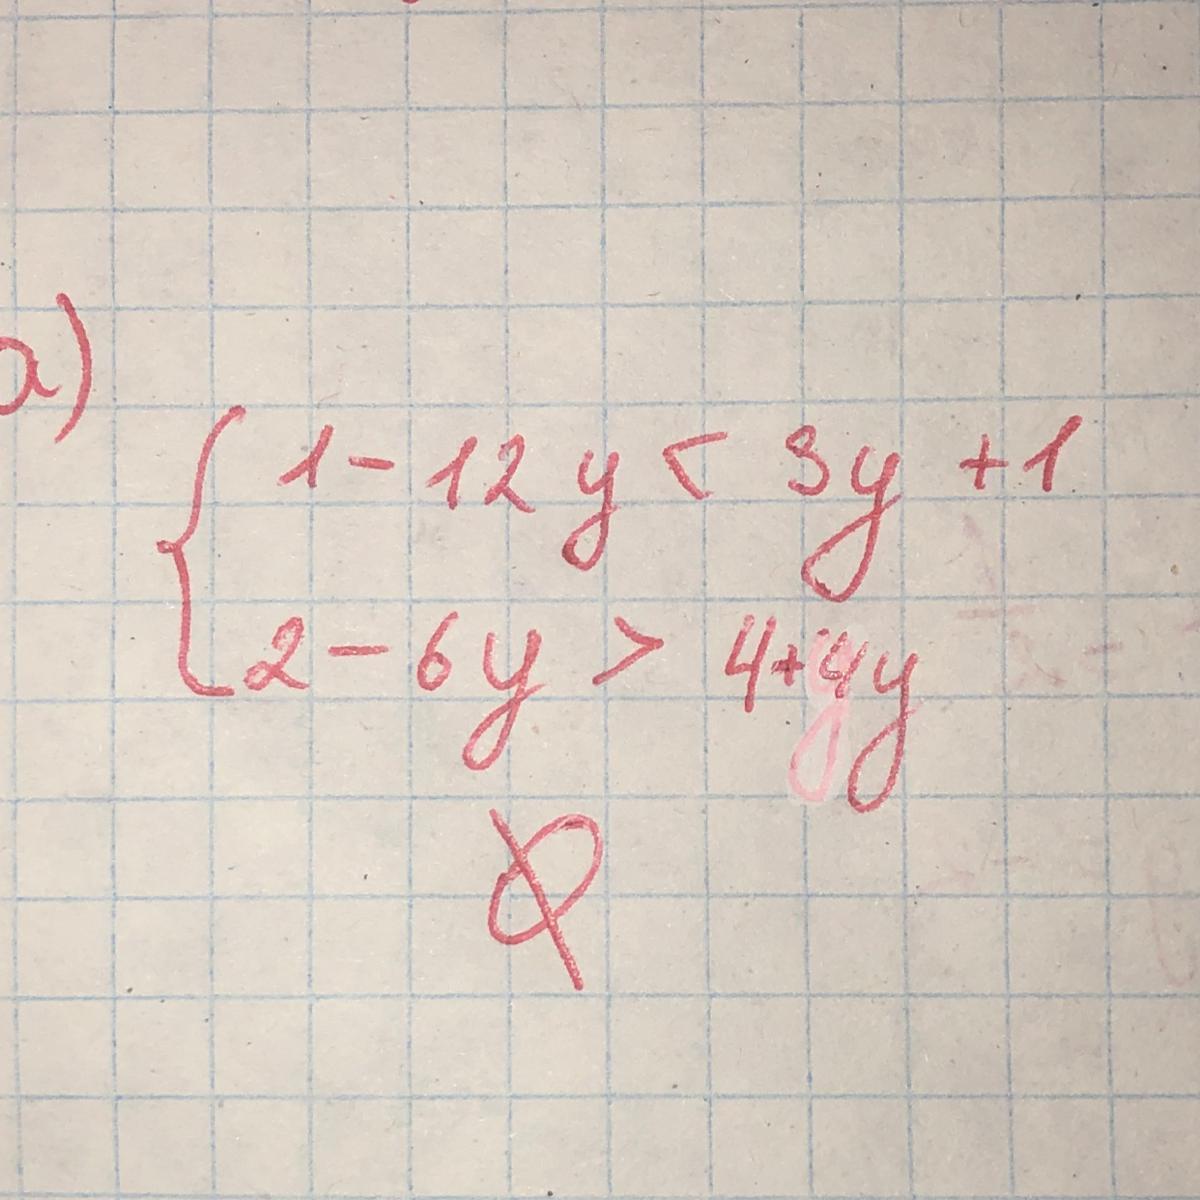 a)
1 - 12y < 3y + 1
2 - 6y > 4+4y
∅